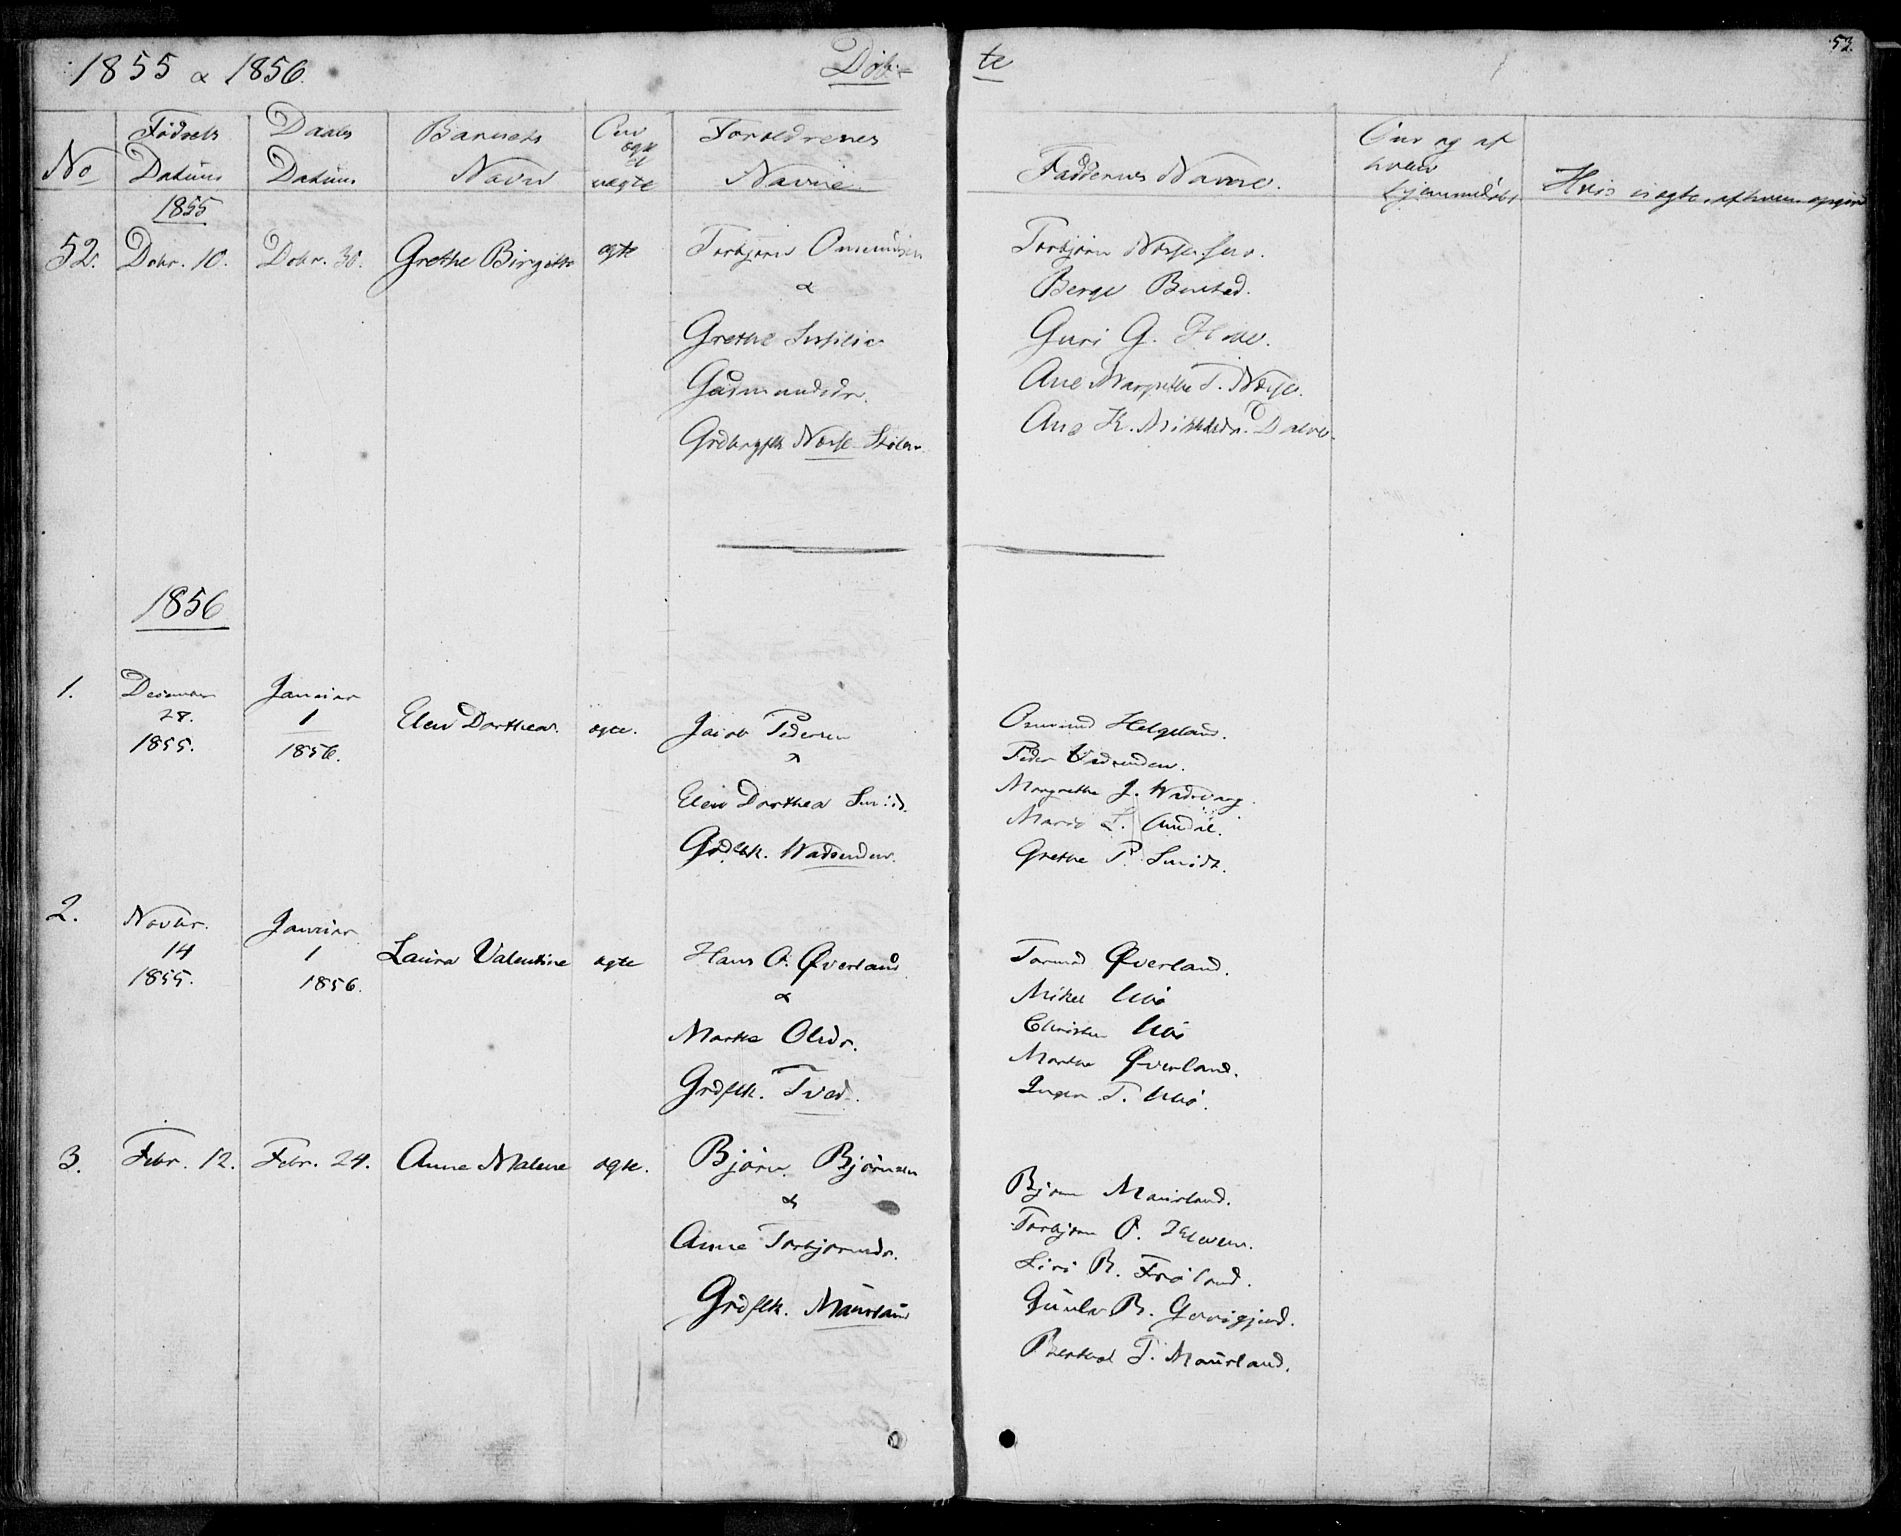 1855 & 1856.
Døb-
te
53.
No
Fødsels Datum
Daabs Datum
Barnets Navn
Om ægte el uægte
Forældrenes Navne
Faddernes Navne.
Om og af hvem hjemmedøbt
Hvis uægte, af hvem opgivet
1855
52. Dcbr. 10. Dcbr. 30. Grethe Birgitte ægte
Torbjørn Ommundsen
&
Grethe
Gudmundsdr.
Torbjørn
Berge Bustad.
Guri G.
Ane Margrethe T.
Ane K. Mikkelsdr.
1856
1. December 28. 1855.
Januar 1 1856.
Elen Dorthea. ægte.
Jacob Pedersen
&
Elen Dorthea Smidt.
Grdflk. Wadsenden.
Osmund Helgeland.
Peder Vadsenden.
Margrethe J.
Maria L. Aaudal.
Grethe P. Smidt.
2. Novbr. 14 1855.
Januar 1 1856.
Laura Valentine ægte
Hans O. Øverland
&
Marthe Olsdr.
Grdflk. Tved.
Tormod Øverland.
Mikel
Christen
Marthe Øverland.
Inger T.
3. Febr. 12. Febr. 24. Anne Malene ægte.
Bjørn Bjørnsen
&
Anne Torbjørnsdr.
Grdflk. Maurland
Bjørn Maurland.
Torbjørn O.
Siri B. Frøland.
Gunla B.
Berthe T. Maurland.